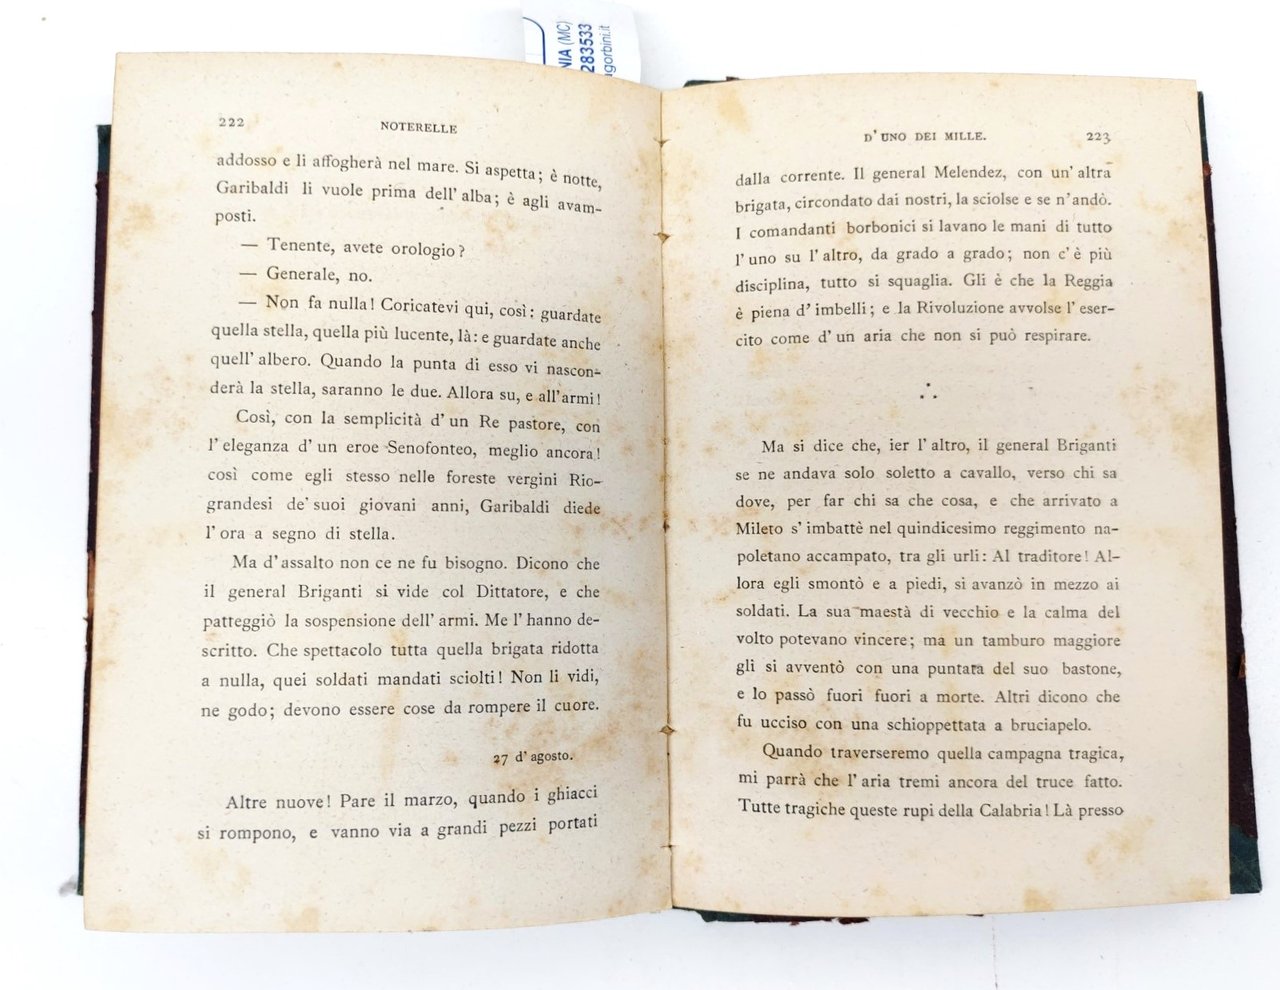 NIA (MC)
283533
agorbini.it
222
NOTERELLE
addosso e li affogherà nel mare. Si aspetta; è notte,
Garibaldi li vuole prima dell' alba; è agli avam-
posti.
— Tenente, avete orologio?
— Generale, no.
— Non fa nulla! Coricatevi qui, così: guardate
quella stella, quella più lucente, là: e guardate anche
quell' albero. Quando la punta di esso vi nascon-
derà la stella, saranno le due. Allora su, e all'armi!
Così, con la semplicità d' un Re pastore, con
l' eleganza d' un eroe Senofonteo, meglio ancora!
così come egli stesso nelle foreste vergini Rio-
grandesi de' suoi giovani anni, Garibaldi diede
l' ora a segno di stella.
Ma d' assalto non ce ne fu bisogno. Dicono che
il general Briganti si vide col Dittatore, e che
patteggiò la sospensione dell' armi. Me l' hanno de-
scritto. Che spettacolo tutta quella brigata ridotta
a nulla, quei soldati mandati sciolti! Non li vidi,
ne godo; devono essere cose da rompere il cuore.
27 d' agosto.
Altre nuove! Pare il marzo, quando i ghiacci
si rompono, e vanno via a grandi pezzi portati
D' UNO DEI MILLE.
223
dalla corrente. Il general Melendez, con un' altra
brigata, circondato dai nostri, la sciolse e se n' andò.
I comandanti borbonici si lavano le mani di tutto
l' uno su l' altro, da grado a grado; non c' è più
disciplina, tutto si squaglia. Gli è che la Reggia
è piena d' imbelli; e la Rivoluzione avvolse l' eser-
cito come d' un aria che non si può respirare.
Ma si dice che, ier l' altro, il general Briganti
se ne andava solo soletto a cavallo, verso chi sa
dove, per far chi sa che cosa, e che arrivato a
Mileto s' imbattè nel quindicesimo reggimento na-
poletano accampato, tra gli urli: Al traditore! Al-
lora egli smontò e a piedi, si avanzò in mezzo ai
soldati. La sua maestà di vecchio e la calma del
volto potevano vincere; ma un tamburo maggiore
gli si avventò con una puntata del suo bastone,
e lo passò fuori fuori a morte. Altri dicono che
fu ucciso con una schioppettata a bruciapelo.
Quando traverseremo quella campagna tragica,
mi parrà che l' aria tremi ancora del truce fatto.
Tutte tragiche queste rupi della Calabria! Là presso